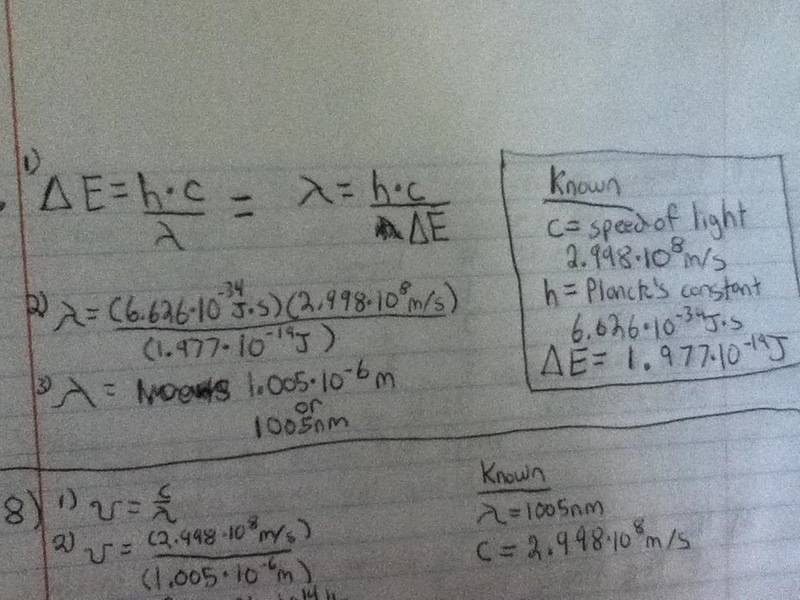 1)
ΔE = h·c/λ = λ = h·c/ΔE
2) λ = (6.626·10⁻³⁴J·s)(2.998·10⁸m/s)/(1.977·10⁻¹⁹J)
3) λ = 1.005·10⁻⁶m
or
1005nm
Known
c = speed of light
2.998·10⁸m/s
h = Planck's constant
6.626·10⁻³⁴J·s
ΔE = 1.977·10⁻¹⁹J
8) 1) ν = c/λ
2) ν = (2.998·10⁸m/s)/(1.005·10⁻⁶m)
Known
λ = 1005nm
c = 2.998·10⁸m/s